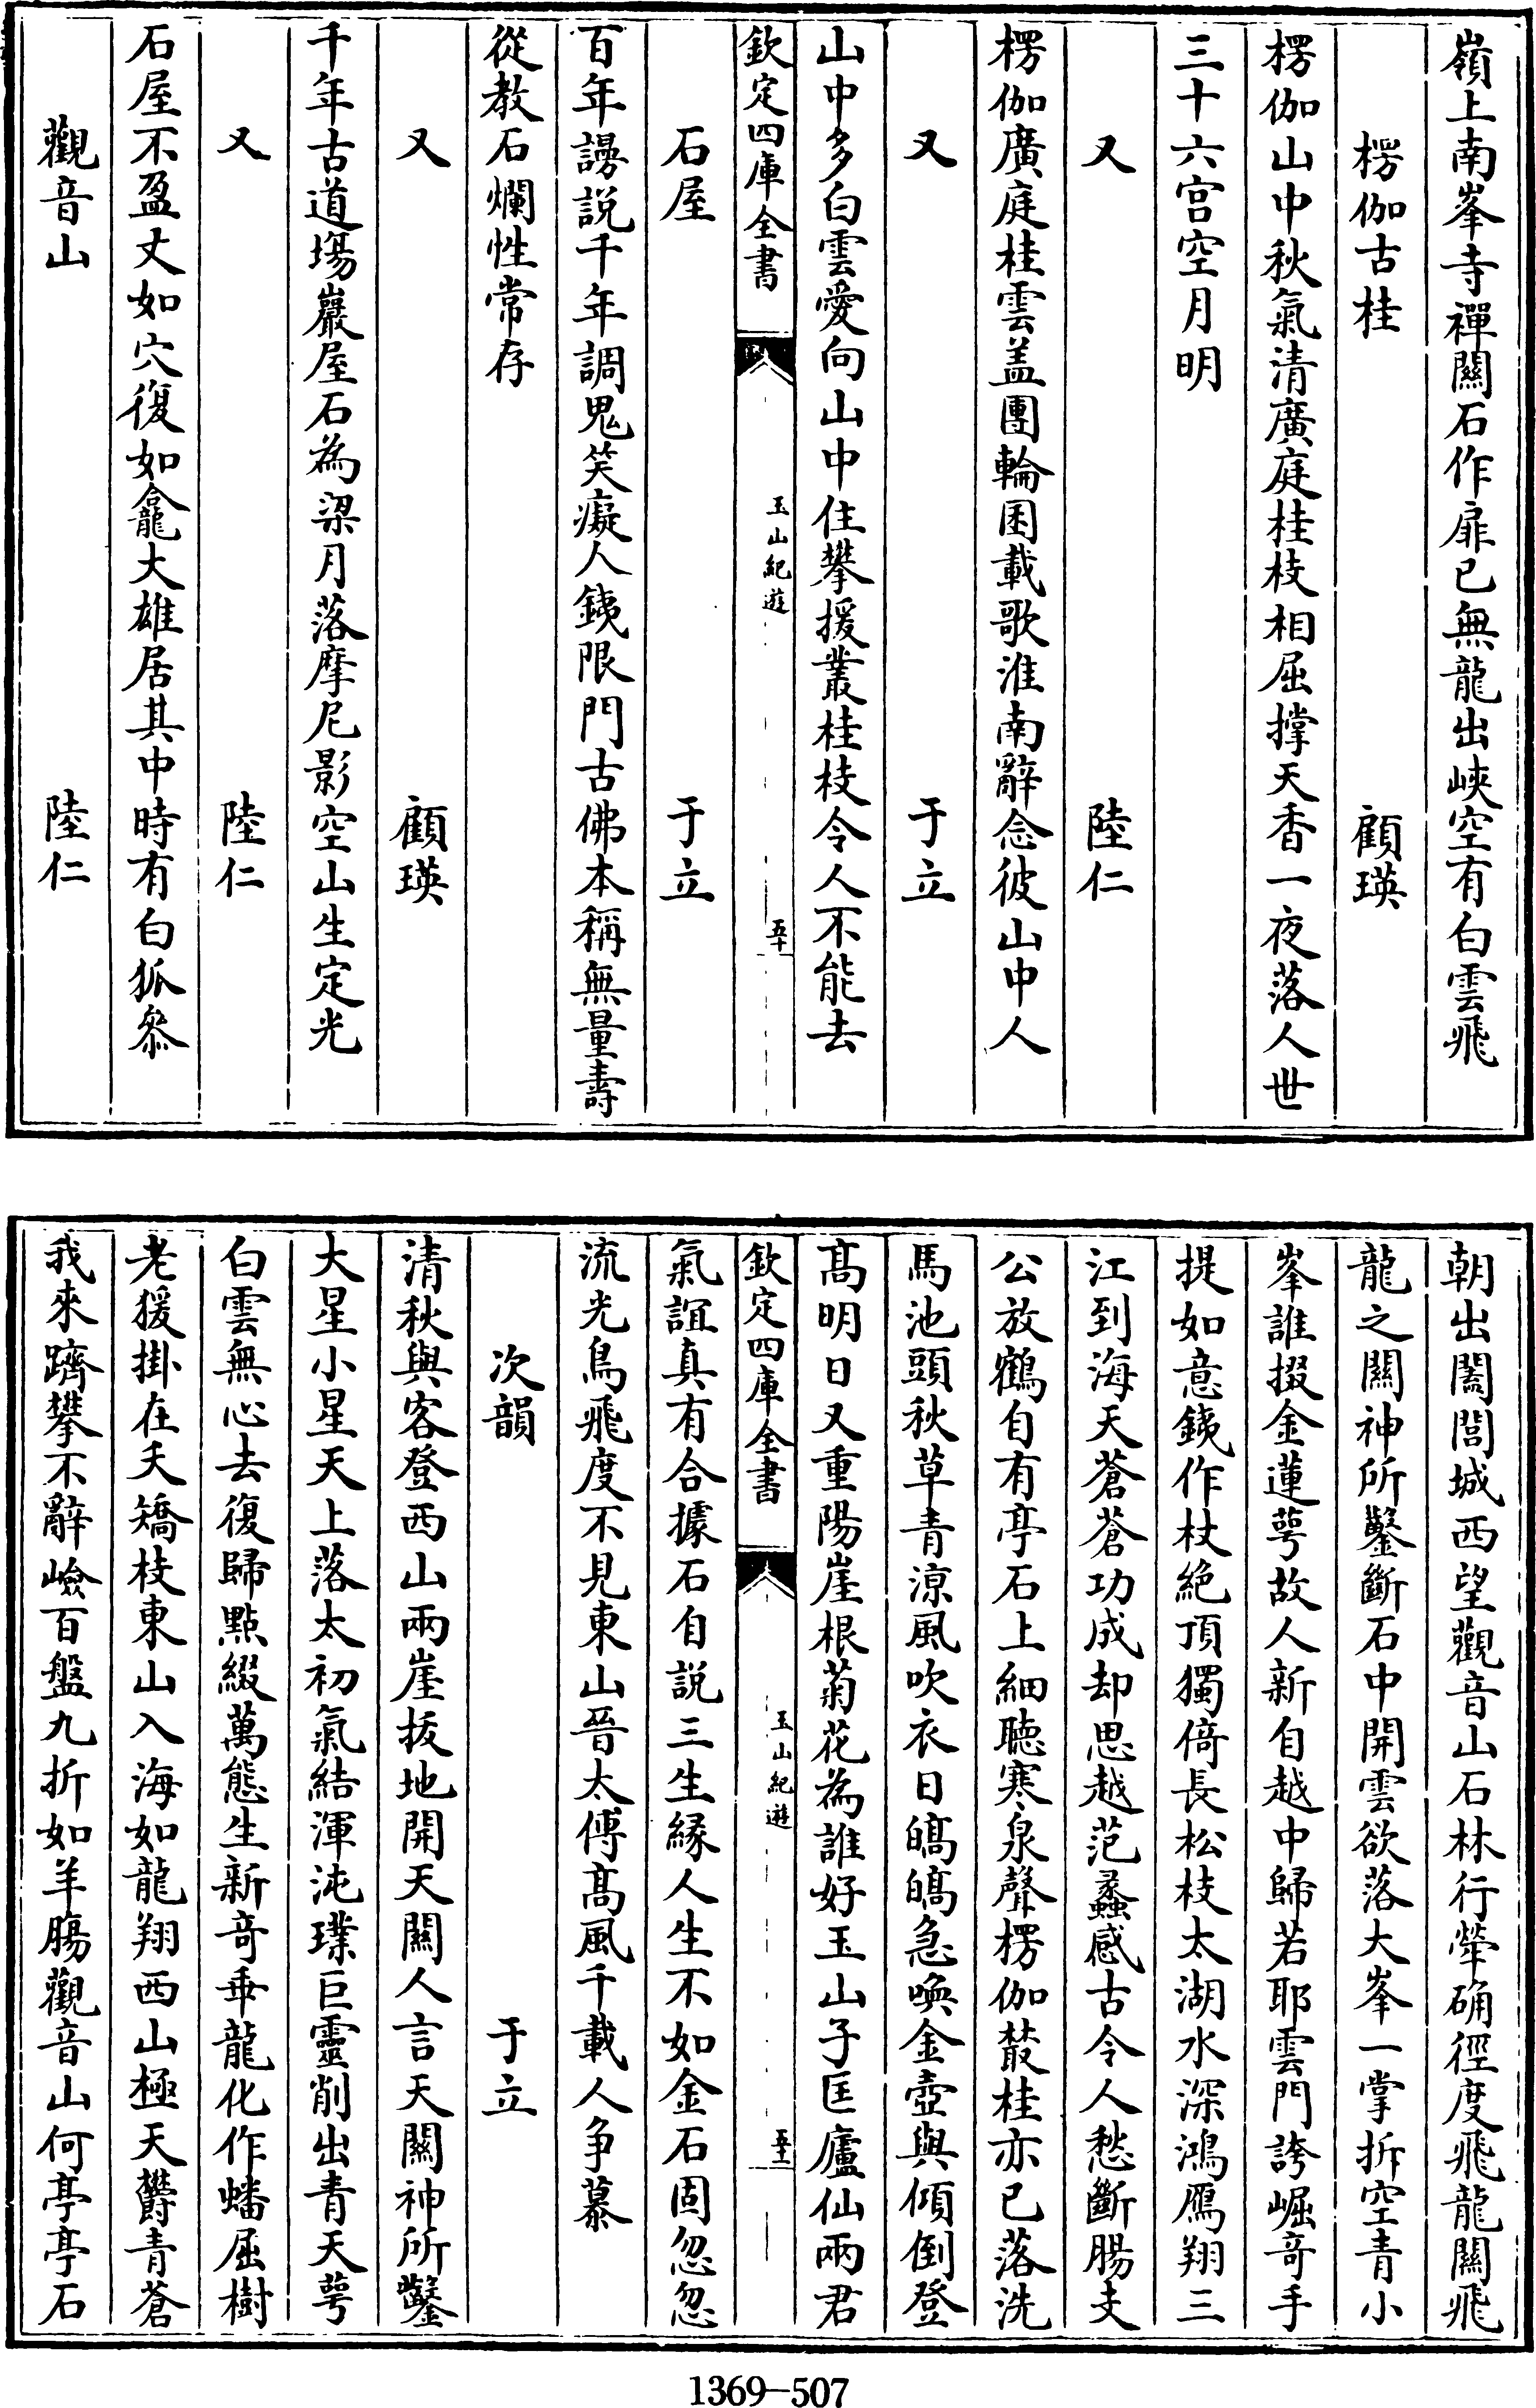 嶺上南峯寺禪關石作扉已無龍出峽空有白雲飛
楞伽古桂　顧瑛
楞伽山中秋氣清廣庭桂枝相屈撑天香一夜落人世
三十六宫空月明
又　陸仁
楞伽廣庭桂雲盖團輪囷載歌淮南辭念彼山中人
又　于立
山中多白雲愛向山中住攀援叢桂枝令人不能去
欽定四庫全書　玉山紀遊　五十
石屋　于立
百年謾説千年調鬼笑癡人鐵限門古佛本稱無量壽
從教石爛性常存
又　顧瑛
千年古道塲巖屋石為梁月落摩尼影空山生定光
又　陸仁
石屋不盈丈如穴復如龕大雄居其中時有白狐叅
觀音山　陸仁
朝出闔閭城西望觀音山石林行犖确徑度飛龍關飛
龍之關神所鑿斷石中開雲欲落大峯一掌拆空青小
峯誰掇金蓮萼故人新自越中歸若耶雲門誇崛奇手
提如意鐵作杖絶頂獨倚長松枝太湖水深鴻雁翔三
江到海天蒼蒼功成却思越范蠡感古令人愁斷腸支
公放鶴自有亭石上細聴寒泉聲楞伽叢桂亦已落洗
馬池頭秋草青涼風吹衣日皜皜急喚金壺與傾倒登
髙明日又重陽崖根菊花為誰好玉山子匡廬仙兩君
欽定四庫全書　玉山紀遊　五十一
氣誼真有合據石自説三生縁人生不如金石固忽忽
流光鳥飛度不見東山晉太傅髙風千載人争慕
次韻　于立
清秋與客登西山兩崖拔地開天關人言天關神所鑿
大星小星天上落太初氣結渾沌璞巨靈削出青天萼
白雲無心去復歸點綴萬態生新奇垂龍化作蟠屈樹
老猨掛在夭矯枝東山入海如龍翔西山極天鬱青蒼
我來躋攀不辭嶮百盤九折如羊腸觀音山何亭亭石
1369—507